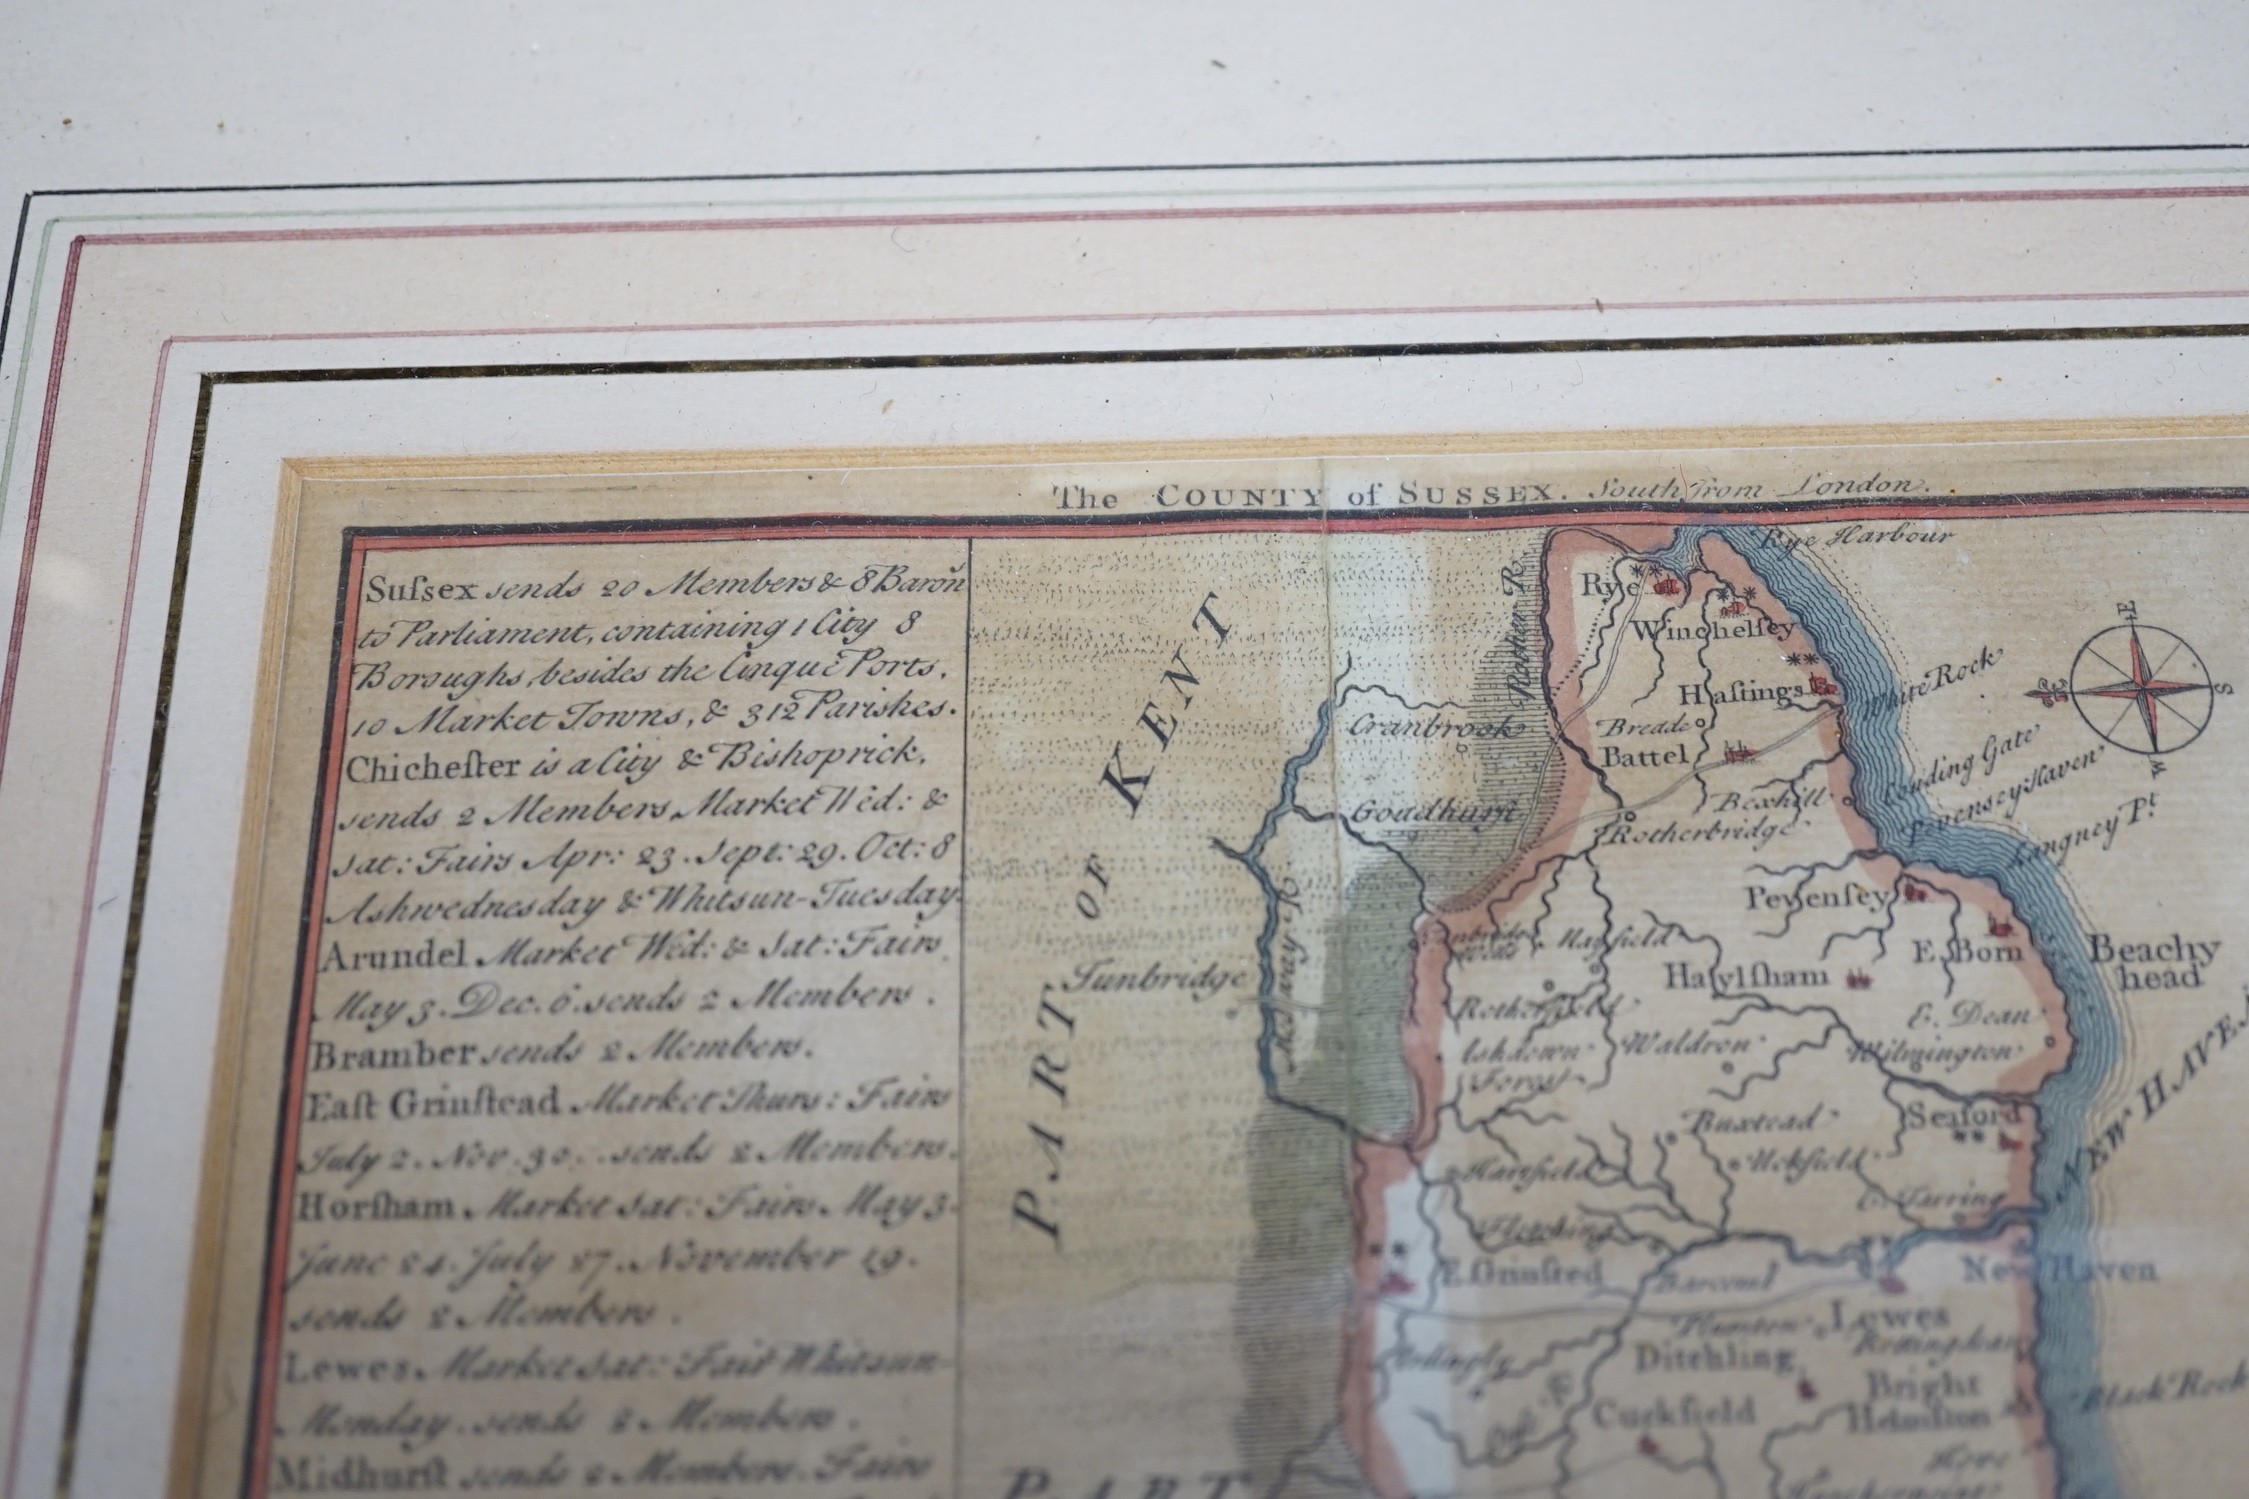 The COUNTY of SUSSEX. South from London.
Suſsex sends 20 Members & 8 Baron̄
to Parliament, containing 1 City 8
Boroughs, besides the Cinque Ports,
10 Market Towns, & 312 Parishes.
Chicheſter is a City & Bishoprick,
sends 2 Members, Market Wed: &
Sat: Fairs Apr: 23. Sept: 29. Oct: 8
Ashwednesday & Whitsun-Tuesday.
Arundel Market Wed: & Sat: Fairs
May 3. Dec. 6. sends 2 Members.
Bramber sends 2 Members.
Eaſt Grinſtead Market Thurs: Fairs
July 2. Nov. 30. sends 2 Members.
Horſham Market Sat: Fairs May 3.
June 24. July 27. November 19.
sends 2 Members.
Lewes Market Sat: Fair Whitsun-
Monday. sends 2 Members.
Midhurſt sends 2 Members. Fairs
PART OF KENT
PART
Rother R.
Medway R.
Cranbrook
Goudhurst
Tunbridge
Rye Harbour
Rye
Winchelſey
Haſtings
White Rock
Breade
Battel
Bexhill
Rotherbridge
Couding Gate
Pevensey Haven
Langney Pt.
E
S
W
Pevenſey
Mayfield
E. Born
Haylſham
Beachy
head
Rotherfield
E. Dean
Ashdown
Forest
Waldron
Wilmington
Seaford
NEW HAVEN
Buxtead
Uckfield
Hartfield
E. Tarring
Fletching
E. Grinſted
Barcomb
New Haven
Plumton
Lewes
Rottingdean
Ardingly
Ditchling
Bright
Helmſton
Black Rock
Cuckfield
Hove